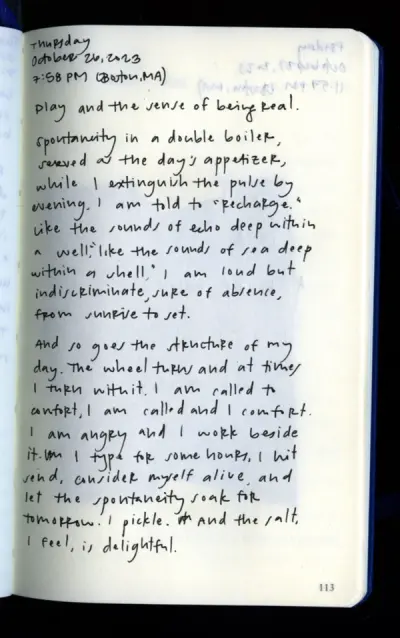 Thursday
October 26, 2023
7:58 PM (Boston, MA)
Play and the sense of being real.
Spontaneity in a double boiler,
served as the day's appetizer,
while I extinguish the pulse by
evening. I am told to "recharge."
Like the sounds of echo deep within
a well, "like the sounds of sea deep
within a shell," I am loud but
indiscriminate, sure of absence,
from sunrise to set.
And so goes the structure of my
day. The wheel turns and at times
I turn with it. I am called to
comfort, I am called and I comfort.
I am angry and I work beside
it. I type for some hours, I hit
send, consider myself alive, and
let the spontaneity soak for
tomorrow. I pickle. And the salt,
I feel, is delightful.
113